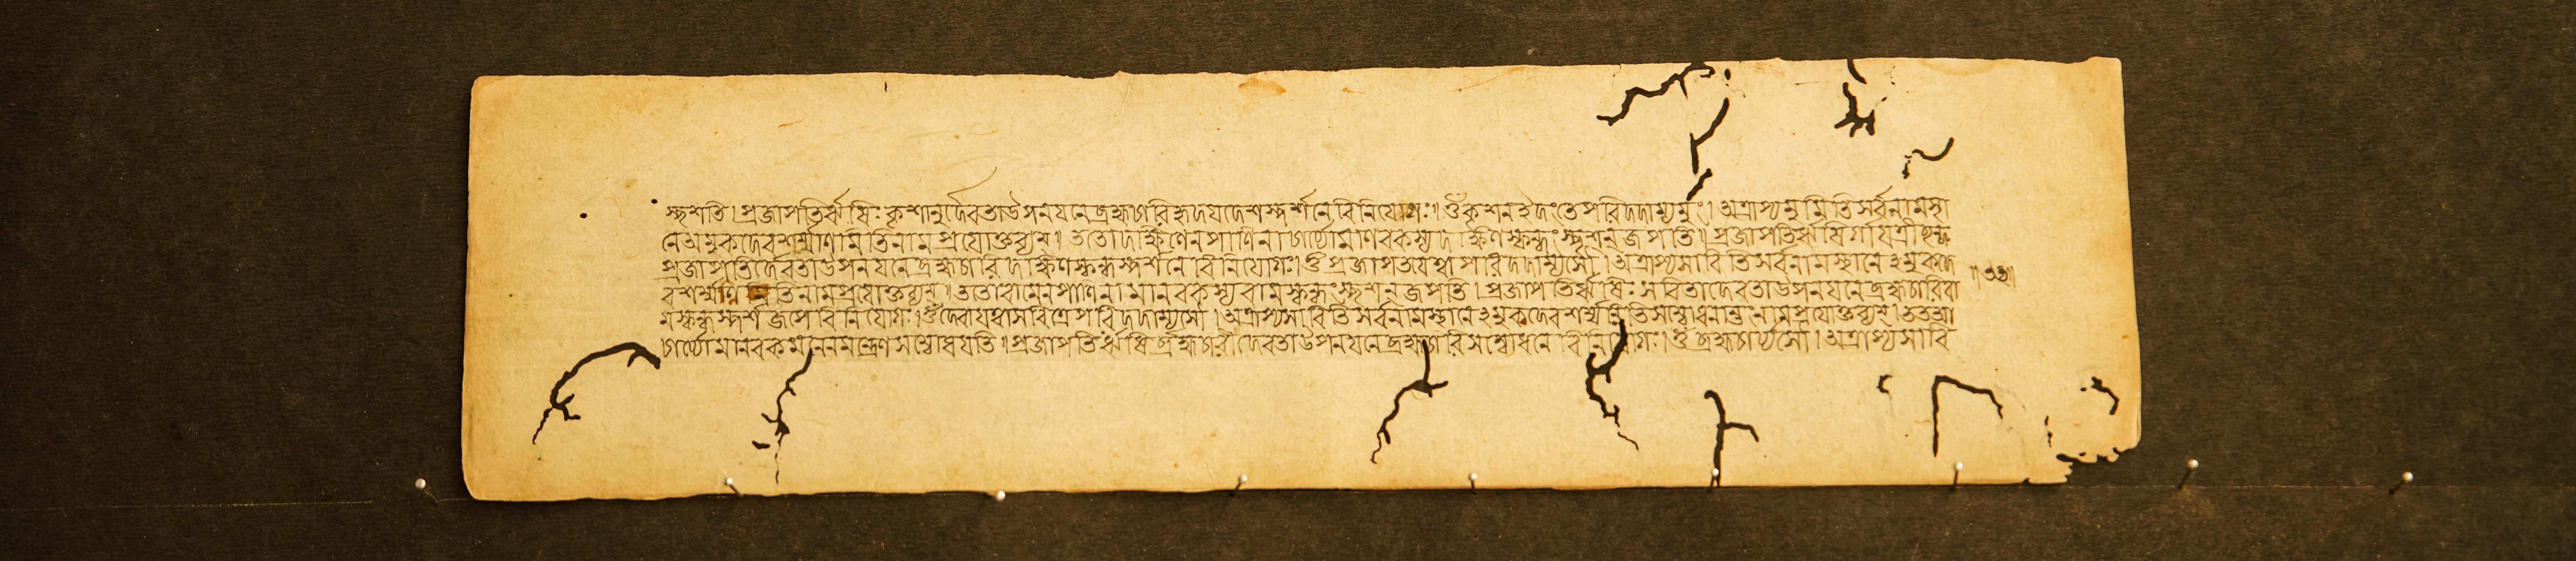 স্পৃশতি। প্রজাপতিরৃষিঃ কৃশানুর্দেবতাউপনয়নেব্রহ্মচারিহৃদয়দেশস্পর্শনেবিনিযোগঃ। ওঁ কৃশনইদংতেপরিদদাম্যমুং। অত্রাপ্যমুমিতিসর্ব্বনামস্থা
নেঅমুকদেবশর্ম্মাণমিতিনামপ্রযোক্তব্যম্। ততোদক্ষিণেনপাণিনাচার্য্যোমাণবকস্যদক্ষিণস্কন্ধংস্পৃশনজপতি। প্রজাপতিরৃষির্গাযত্রীছন্দঃ
প্রজাপতির্দেবতাউপনয়নেব্রহ্মচারিদক্ষিণস্কন্ধস্পর্শনেবিনিযোগঃ। ওঁ প্রজাপতযেত্বাপরিদদাম্যসৌ। অত্রাপ্যসাবিতিসর্ব্বনামস্থানেঽমুকদে ॥৩৩॥
বশর্ম্মাণমিতিনামপ্রযোক্তব্যম্। ততোবামেনপাণিনামানবকস্যবামস্কন্ধংস্পৃশনজপতি। প্রজাপতিরৃষিঃ সবিতাদেবতাউপনয়নেব্রহ্মচারিবা
মস্কন্ধস্পর্শজপেবিনিযোগঃ। ওঁ দেবাযত্বাসবিত্রেপরিদদাম্যসৌ। অত্রাপ্যসাবিতিসর্ব্বনামস্থানেঽমুকদেবশর্ম্মন্নিতিসম্বোধনান্তনামপ্রযোক্তব্যম্। ততআ
চার্য্যোমানবকমনেনমন্ত্রেণসম্বোধযতি। প্রজাপতিরৃষির্ব্রহ্মচারীদেবতাউপনয়নেব্রহ্মচারিসম্বোধনেবিনিযোগঃ। ওঁ ব্রহ্মচার্য্যসৌ। অত্রাপ্যসাবি